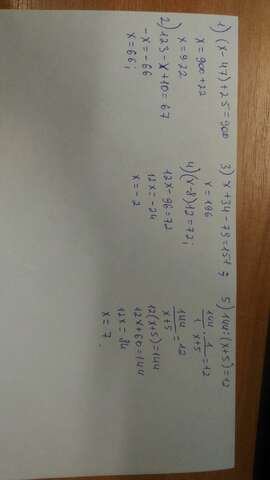 1) (x-47)+25=900
x=900+22
x=922
2) 123-x+10=67
-x=-66
x=66;
3) x+34-79=151;
x=196
4) (x-8)12=72;
12x-96=72
12x=-24
x=-2
5) 144:(x+5)=12
144/1 · 1/(x+5)=12
144/(x+5)=12
12(x+5)=144
12x+60=144
12x=84
x=7.